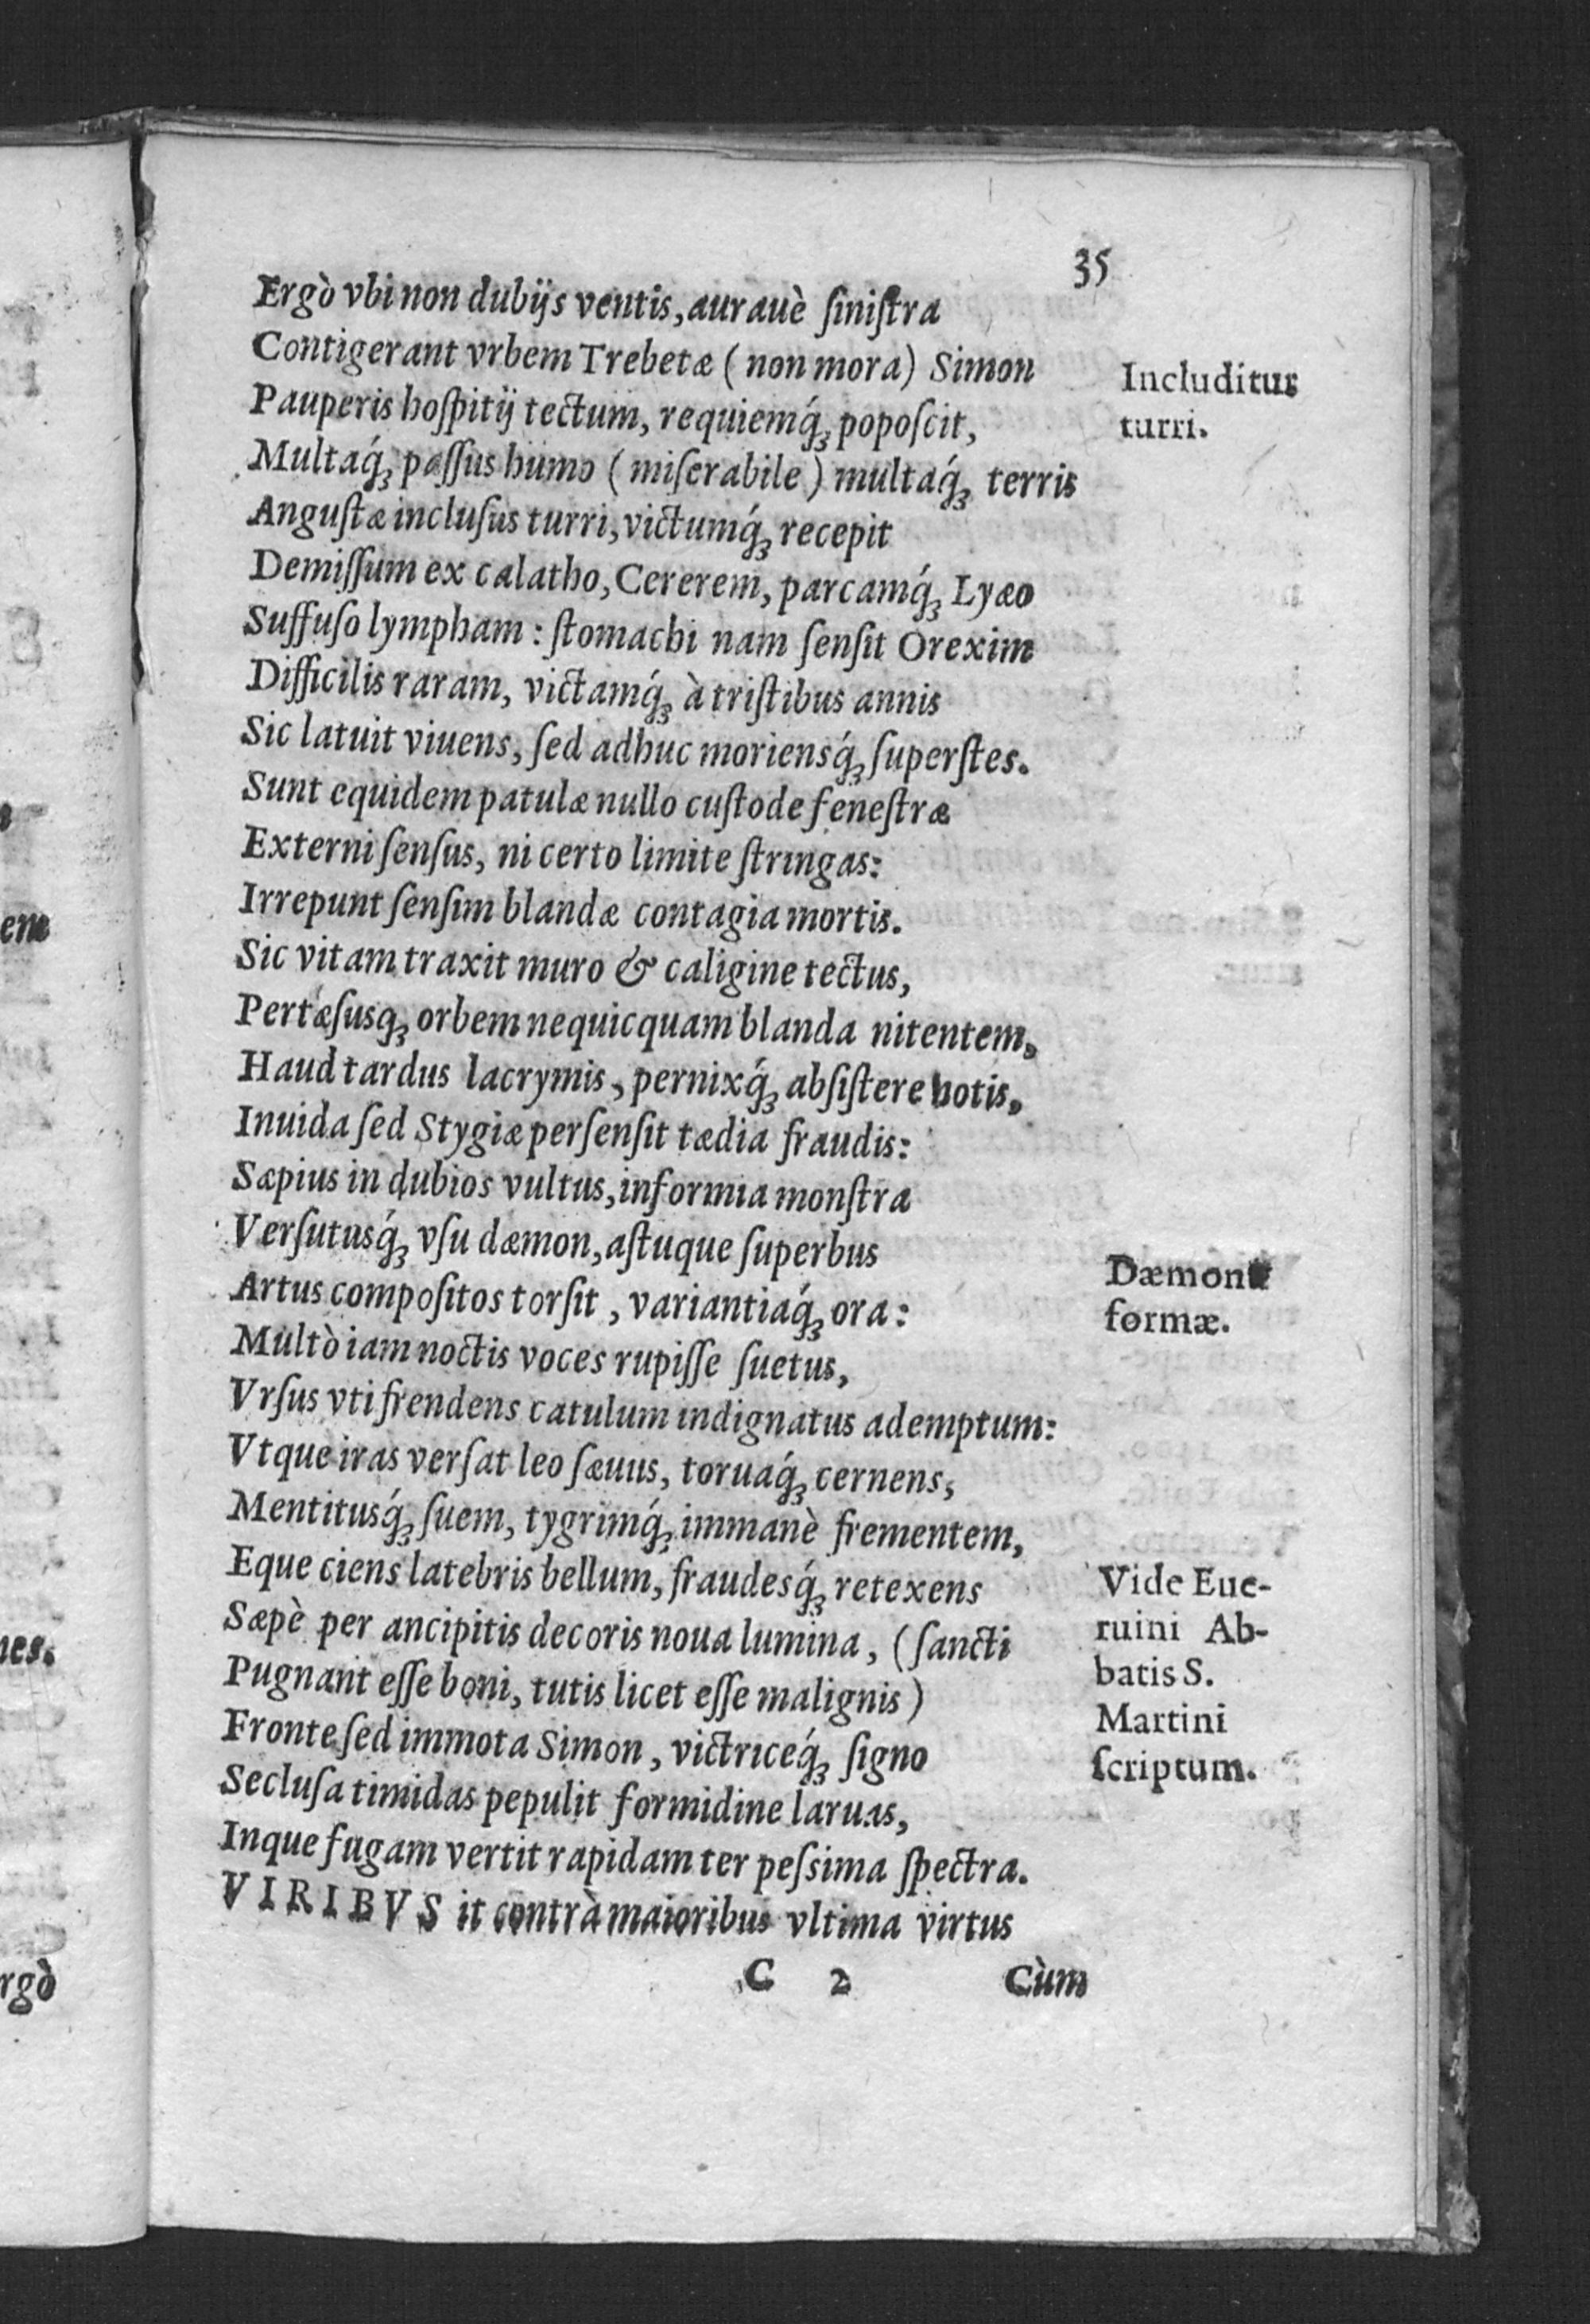 35
Ergò vbi non dubijs ventis, aurauè ſiniſtra
Contigerant vrbem Trebetæ ( non mora) Simon
Pauperis hoſpitij tectum, requiemq́ꝫ popoſcit,
Multaq́ꝫ paſſus humo ( miſerabile ) multaq́ꝫ terris
Anguſtæ incluſus turri, victumq́ꝫ recepit
Demiſſum ex calatho, Cererem, parcamq́ꝫ Lyæo
Suffuſo lympham: ſtomachi nam ſenſit Orexim
Difficilis raram, victamq́ꝫ à triſtibus annis
Sic latuit viuens, ſed adhuc moriensq́ꝫ ſuperſtes.
Sunt equidem patulæ nullo cuſtode feneſtræ
Externi ſenſus, ni certo limite ſtringas:
Irrepunt ſenſim blandæ contagia mortis.
Sic vitam traxit muro & caligine tectus,
Pertæſusqꝫ orbem nequicquam blanda nitentem,
Haud tardus lacrymis, pernixq́ꝫ abſiſtere notis,
Inuida ſed Stygiæ perſenſit tædia fraudis:
Sæpius in dubios vultus, informia monſtra
Verſutusq́ꝫ vſu dæmon, aſtuque ſuperbus
Artus compoſitos torſit, variantiaq́ꝫ ora:
Multò iam noctis voces rupiſſe ſuetus,
Vrſus vti frendens catulum indignatus ademptum:
Vtque iras verſat leo ſæuus, toruaq́ꝫ cernens,
Mentitusq́ꝫ ſuem, tygrimq́ꝫ immanè frementem,
Eque ciens latebris bellum, fraudesq́ꝫ retexens
Sæpè per ancipitis decoris noua lumina, (ſancti
Pugnant eſſe boni, tutis licet eſſe malignis)
Fronte ſed immota Simon, victriceq́ꝫ ſigno
Secluſa timidas pepulit formidine laruas,
Inque fugam vertit rapidam ter peſsima ſpectra.
VIRIBVS it contrà maioribus vltima virtus
C 2 Cùm
Includitur
turri.
Dæmonis
formæ.
Vide Eue-
ruini Ab-
batis S.
Martini
ſcriptum.
em
nes.
rgò